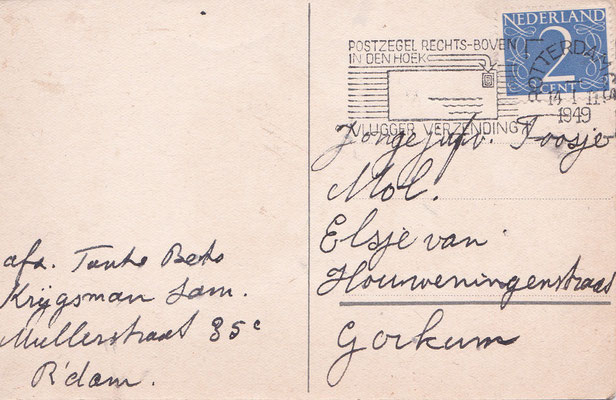 NEDERLAND
2
CENT
POSTZEGEL RECHTS-BOVEN
IN DEN HOEK
VLUGGER VERZENDING
ROTTERDAM
1949
Toosje
Mol.
Elsje van
Houweningenstraat
Gorkum
afz. Tante Beto
Krijgsman Jam.
Mullerstraat 35c
R'dam.